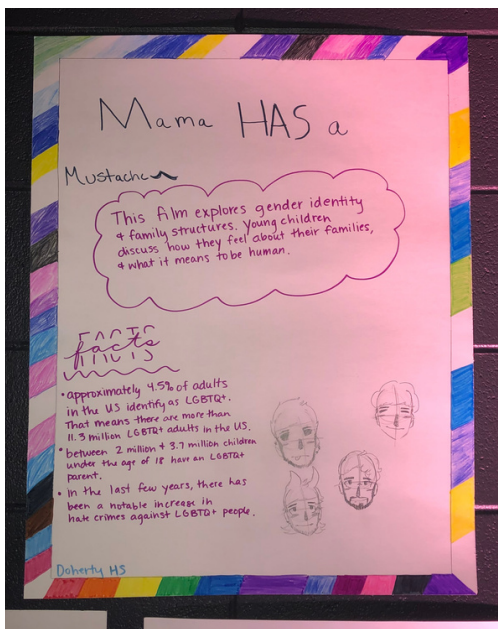 Mama HAS a
Mustache
This film explores gender identity
& family structures. Young children
discuss how they feel about their families,
& what it means to be human.
facts
• approximately 4.5% of adults
in the US identify as LGBTQ+.
That means there are more than
11.3 million LGBTQ+ adults in the US.
• between 2 million & 3.7 million children
under the age of 18 have an LGBTQ+
parent.
• In the last few years, there has
been a notable increase in
hate crimes against LGBTQ+ people.
Doherty HS